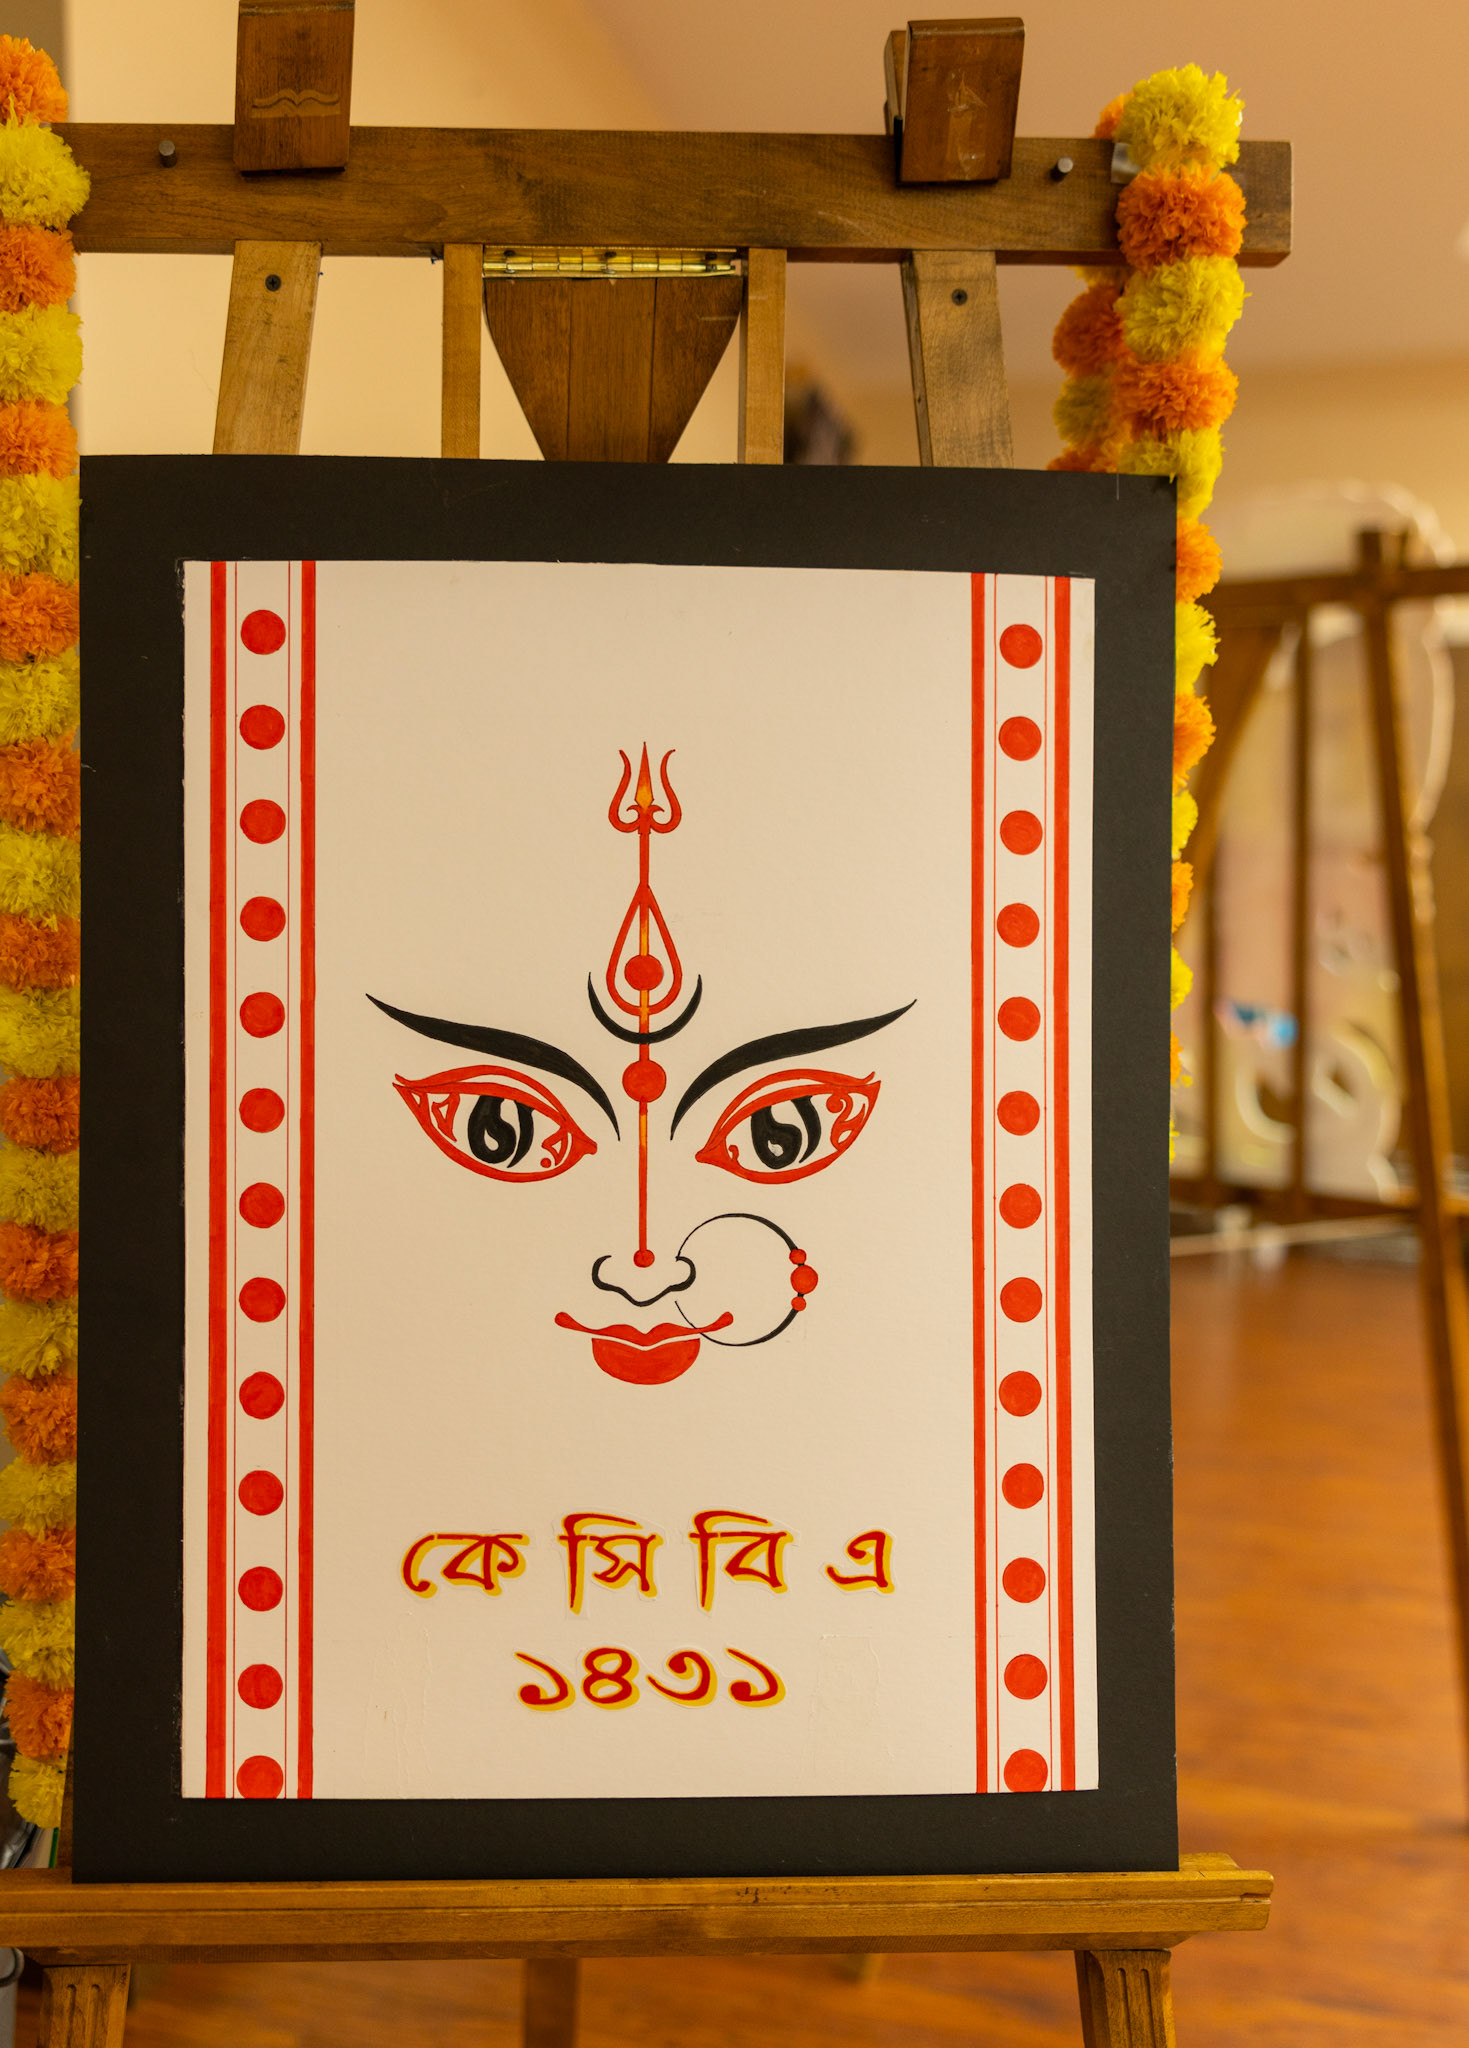 কে সি বি এ
১৪৩১